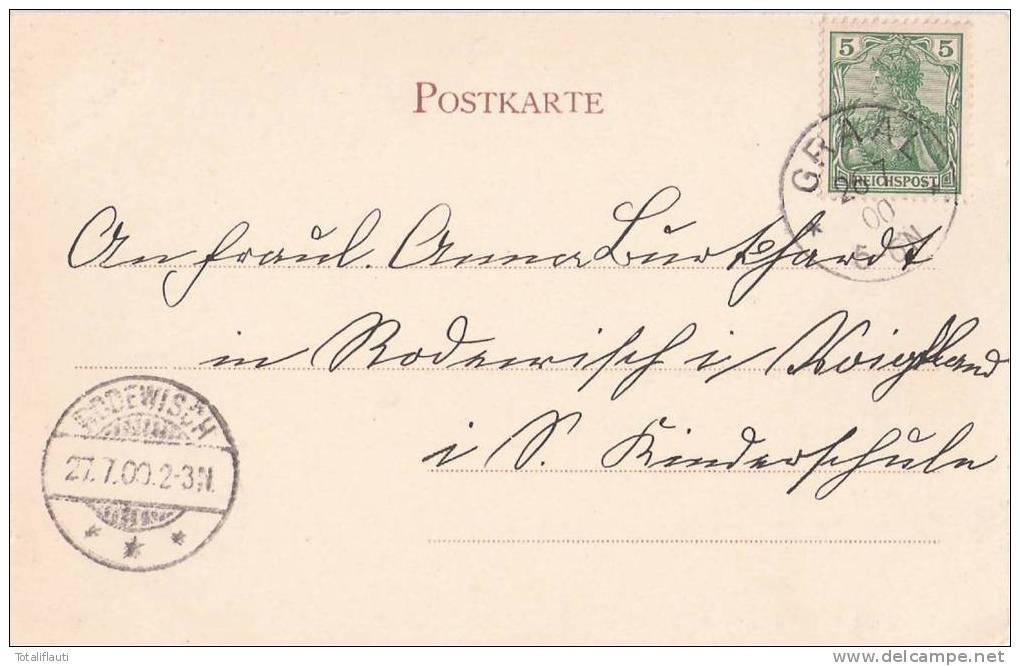 POSTKARTE
5 5
REICHSPOST
GRAAL
26 7
00
* 5-6N
An Fraul. Anna Burkhardt
in Rodewisch i/ Voigtland
i S. Kinderschule
RODEWISCH
27.7.00.2-3N.
* * *
Totaliflauti
delcampe.net